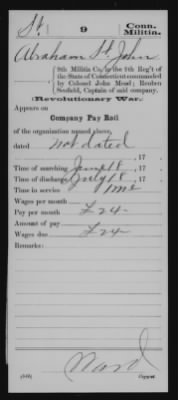 St.
9
Conn. Militia.
Abraham St. John
9th Militia Co., in the 9th Reg't of
the State of Connecticut commanded
by Colonel John Mead; Reuben
Scofield, Captain of said company.
(Revolutionary War.)
Appears on
Company Pay Roll
of the organization named above,
dated not dated, 17
Time of marching June 18, 17
Time of discharge July 18, 17
Time in service 1 mo
Wages per month
Pay per month £24-
Amount of pay
Wages due £24
Remarks:
Ward
Copyist.